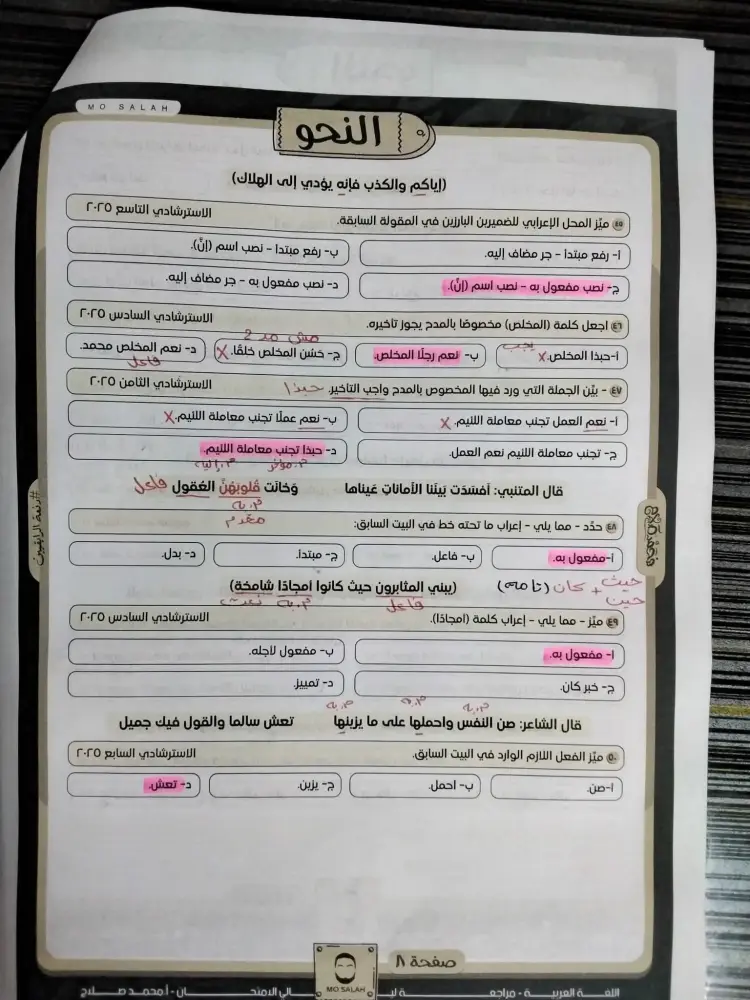 MO SALAH
النحو
(إياكم والكذب فإنه يؤدي إلى الهلاك)
٤٥ ميّز المحل الإعرابي للضميرين البارزين في المقولة السابقة. الاسترشادي التاسع ٢٠٢٥
أ- رفع مبتدأ - جر مضاف إليه. ب- رفع مبتدا - نصب اسم (إنّ).
ج- نصب مفعول به - نصب اسم (إنّ). د- نصب مفعول به - جر مضاف إليه.
٤٦ اجعل كلمة (المخلص) مخصوصًا بالمدح يجوز تاخيره. الاسترشادي السادس ٢٠٢٥
يجب مش مدح
أ-حبذا المخلص. x ب- نعم رجلًا المخلص. ج- حَسُن المخلص خلقًا. x د- نعم المخلص محمد.
فاعل
٤٧ - بيّن الجملة التي ورد فيها المخصوص بالمدح واجب التاخير. حبذا الاسترشادي الثامن ٢٠٢٥
أ- نعم العمل تجنب معاملة اللئيم. x ب- نعم عملًا تجنب معاملة اللئيم. x
ج- تجنب معاملة اللئيم نعم العمل. د- حبذا تجنب معاملة اللئيم.
م. مؤخر م. إليه
قال المتنبي: أفسَدَت بَينَنا الأماناتِ عَيناها وَخانَت قُلوبَهُنَّ العُقول فاعل
م. به
مقدم
٤٨ حدّد - مما يلي - إعراب ما تحته خط في البيت السابق:
أ-مفعول به. ب- فاعل. ج- مبتدأ. د- بدل.
حيث
حين + كان (تامه) (يبني المثابرون حيث كانوا أمجادًا شامخة)
فاعل م. به نعت
٤٩ ميّز - مما يلي - إعراب كلمة (امجادًا). الاسترشادي السادس ٢٠٢٥
ا- مفعول به. ب- مفعول لاجله.
ج- خبر كان. د- تمييز.
م. به م. به م. به
قال الشاعر: صن النفس واحملها على ما يزينها تعش سالما والقول فيك جميل
٥٠ ميّز الفعل اللازم الوارد في البيت السابق. الاسترشادي السابع ٢٠٢٥
أ-صن. ب- احمل. ج- يزين. د- تعش.
صفحة ٨
MO SALAH